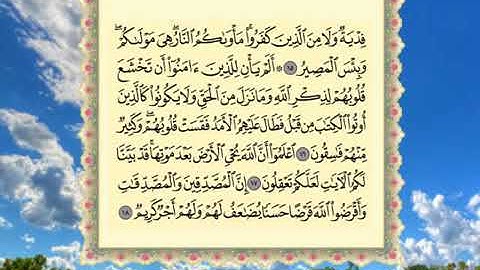 فِدْيَةٌ وَلَا مِنَ ٱلَّذِينَ كَفَرُوا۟ مَأْوَىٰكُمُ ٱلنَّارُ هِىَ مَوْلَىٰكُمْ
وَبِئْسَ ٱلْمَصِيرُ ١٥ ۞ أَلَمْ يَأْنِ لِلَّذِينَ ءَامَنُوٓا۟ أَن تَخْشَعَ
قُلُوبُهُمْ لِذِكْرِ ٱللَّهِ وَمَا نَزَلَ مِنَ ٱلْحَقِّ وَلَا يَكُونُوا۟ كَٱلَّذِينَ
أُوتُوا۟ ٱلْكِتَٰبَ مِن قَبْلُ فَطَالَ عَلَيْهِمُ ٱلْأَمَدُ فَقَسَتْ قُلُوبُهُمْ وَكَثِيرٌ
مِّنْهُمْ فَٰسِقُونَ ١٦ ٱعْلَمُوٓا۟ أَنَّ ٱللَّهَ يُحْىِ ٱلْأَرْضَ بَعْدَ مَوْتِهَا قَدْ بَيَّنَّا
لَكُمُ ٱلْءَايَٰتِ لَعَلَّكُمْ تَعْقِلُونَ ١٧ إِنَّ ٱلْمُصَّدِّقِينَ وَٱلْمُصَّدِّقَٰتِ
وَأَقْرَضُوا۟ ٱللَّهَ قَرْضًا حَسَنًا يُضَٰعَفُ لَهُمْ وَلَهُمْ أَجْرٌ كَرِيمٌ ١٨